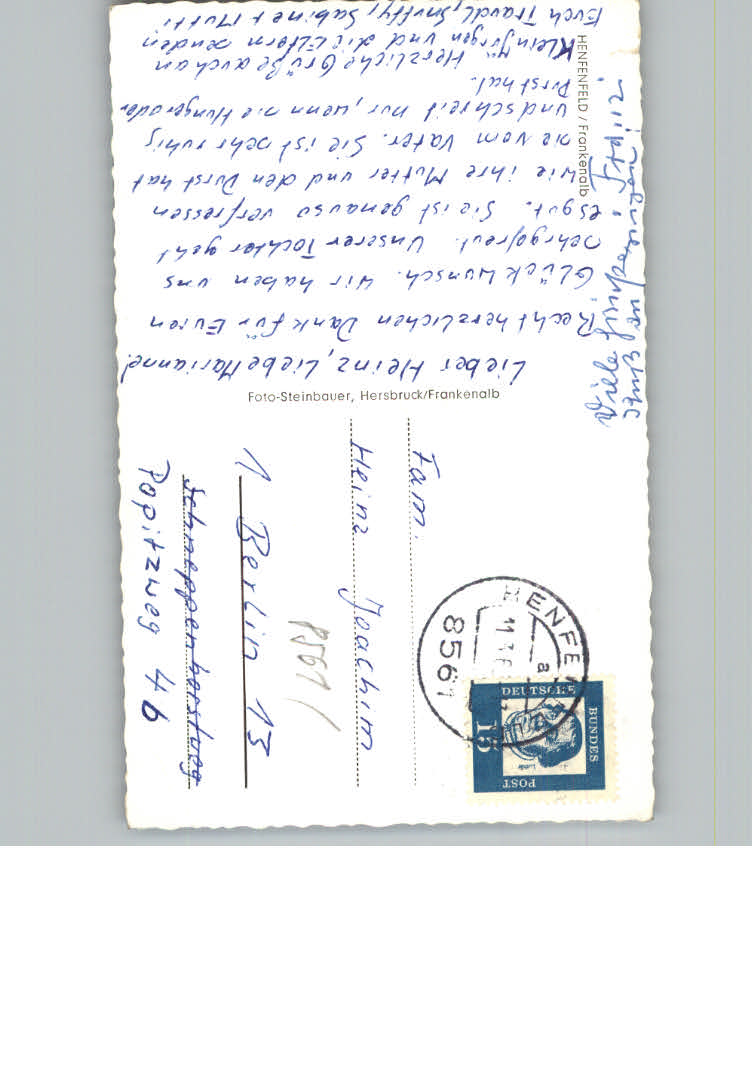 Lieber Heinz, Liebe Marianne!
Recht herzlichen Dank für Euren
Glückwunsch. Wir haben uns
sehr gefreut. Unserer Tochter geht
es gut. Sie ist genauso verfressen
wie ihre Mutter und den Durst hat
sie vom Vater. Sie ist sehr ruhig
und schreit nur, wenn sie Hunger oder
Durst hat.
Herzliche Grüße auch an
Klein Jürgen und die Eltern senden
Euch Traudl, Snuffy, Sabine + Mutti
Viele
HENFENFELD / Frankenalb
Foto-Steinbauer, Hersbruck/Frankenalb
Fam.
Heinz Joachim
1 Berlin 13
Popitzweg 4b
8561
HENFENFE
a
8561
DEUTSCHE
BUNDES
POST
15